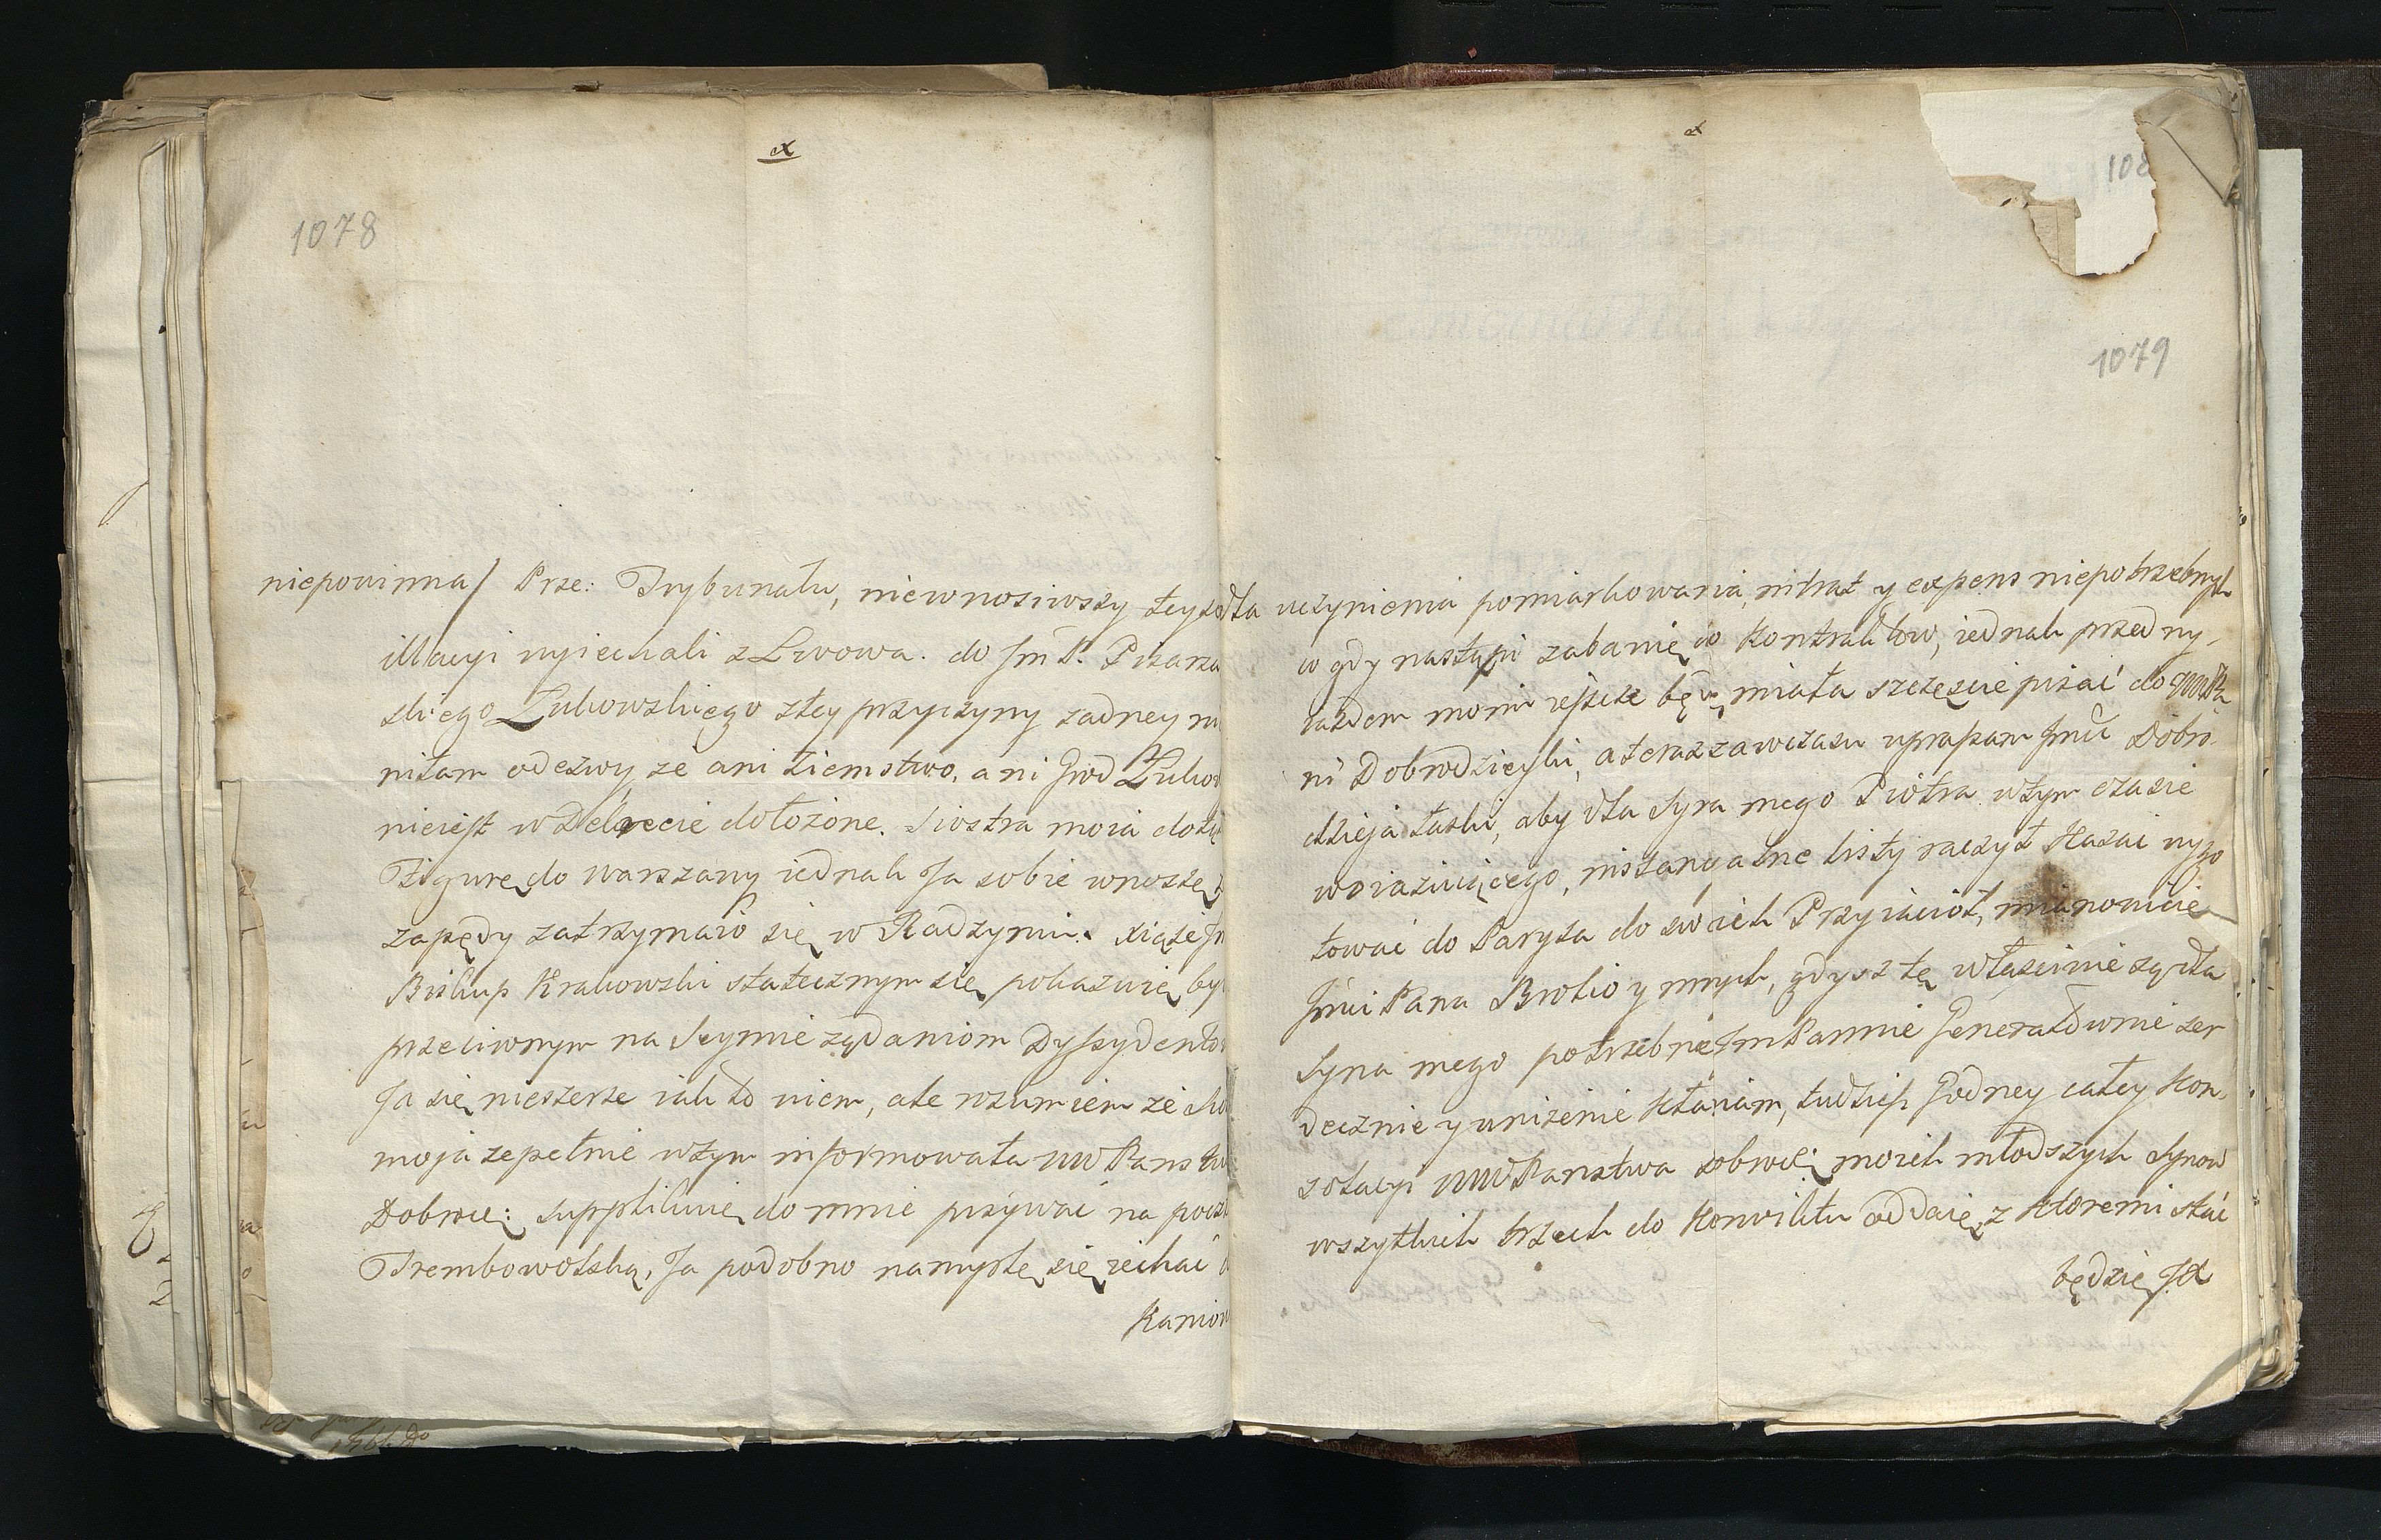 α
1078
niepowinna / Prze: Trybunału, niewnosiwszy tey
illacyi wyiechali z Lwowa. do Jm P. Pisarza
skiego Łukowskiego ztey przyczyny zadney
niłam odezwy ze ani Ziemstwo, ani Grod
nieiest w Dekrecie dołożone. Siostra moia
Figurę do warszawy iednak Ja sobie wnoszę
zapędy zatrzymaio się w Radzymi. Xiąże
Biskup Krakowski statecznym się pokazuie
przeciwnym na Seymie ządaniom
Ja się nieszerze iak to wiem, ale rozumiem ze
moja zepełnie wtym informowała WW
Dobrwci: supplikuię do mnie pisywać na
Trembowolską, Ja podobno namyslę się iechać
α
108
1079
dla uczynienia pomiarkowania intrat y expens niepotrzebnych
w gdy nastąpi zabanię do Kontraktow, iednak przed wy-
iazdem moim ieszcze będę miała szczęscie pisać do
ni Dobrodzieyki, a teraz zawczasu upraszam Jmci Dobro-
dzieja łaski, aby dla Syna mego Piotra wtym czasie
woiażuiącego, instancyalne listy raczył Kazać wygo
towac do Paryża do swoich Przyiacioł, mianowicie
Jmci Pana Brolio y innych, gdysz te własciwie są dla
Syna mego potrzebne Jm Pannie Generałownie ser
decznie y uniżenie kłaniam, tudziesz Godney całey Kon-
solacyi WW Panstwa Dobrwci: moich młodszych Synow
wszytkich trzech do Konwiktu oddaię, z ktoremi stać
będzie JX